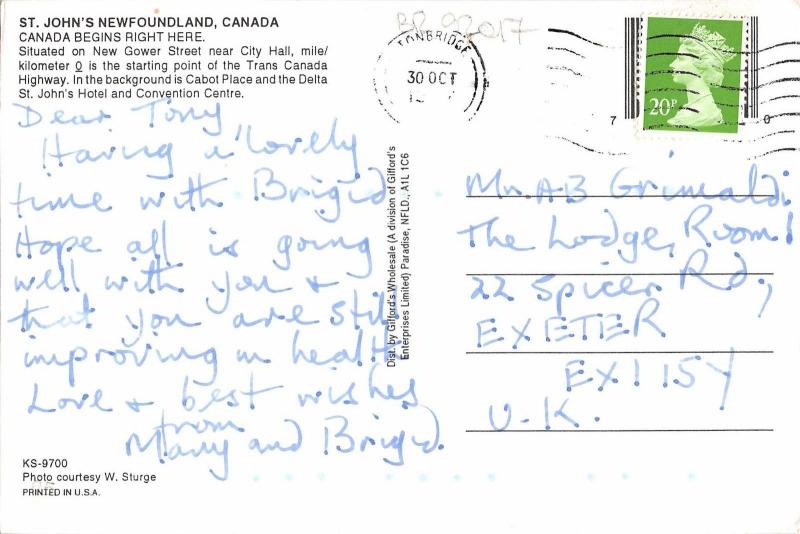 ST. JOHN'S NEWFOUNDLAND, CANADA
CANADA BEGINS RIGHT HERE.
Situated on New Gower Street near City Hall, mile/
kilometer 0 is the starting point of the Trans Canada
Highway. In the background is Cabot Place and the Delta
St. John's Hotel and Convention Centre.
Dear Tony,
Having a lovely
time with Brigid
Hope all is going
well with you &
that you are still
improving in health
Love & best wishes
from
Mary and Brigid.
KS-9700
Photo courtesy W. Sturge
PRINTED IN U.S.A.
Dist. by Gifford's Wholesale (A division of Gifford's
Enterprises Limited) Paradise, NFLD., A1L 1C6
TONBRIDGE
30 OCT
20P
7 0
Mr. A B Grimaldi
The Lodge, Room 1
22 Spicer Rd,
EXETER
EX1 1SY
U.K.